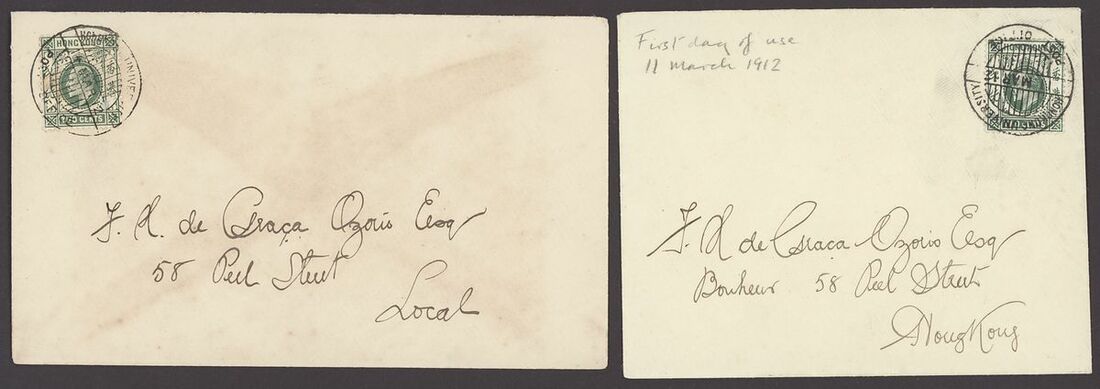 HONG KONG
TWO CENTS
F. H. de Graça Ozorio Esq
58 Peel Street
Local
First day of use
11 March 1912
HONG KONG
MAR 12
F. H de Graça Ozorio Esq
Bonheur 58 Peel Street
HongKong